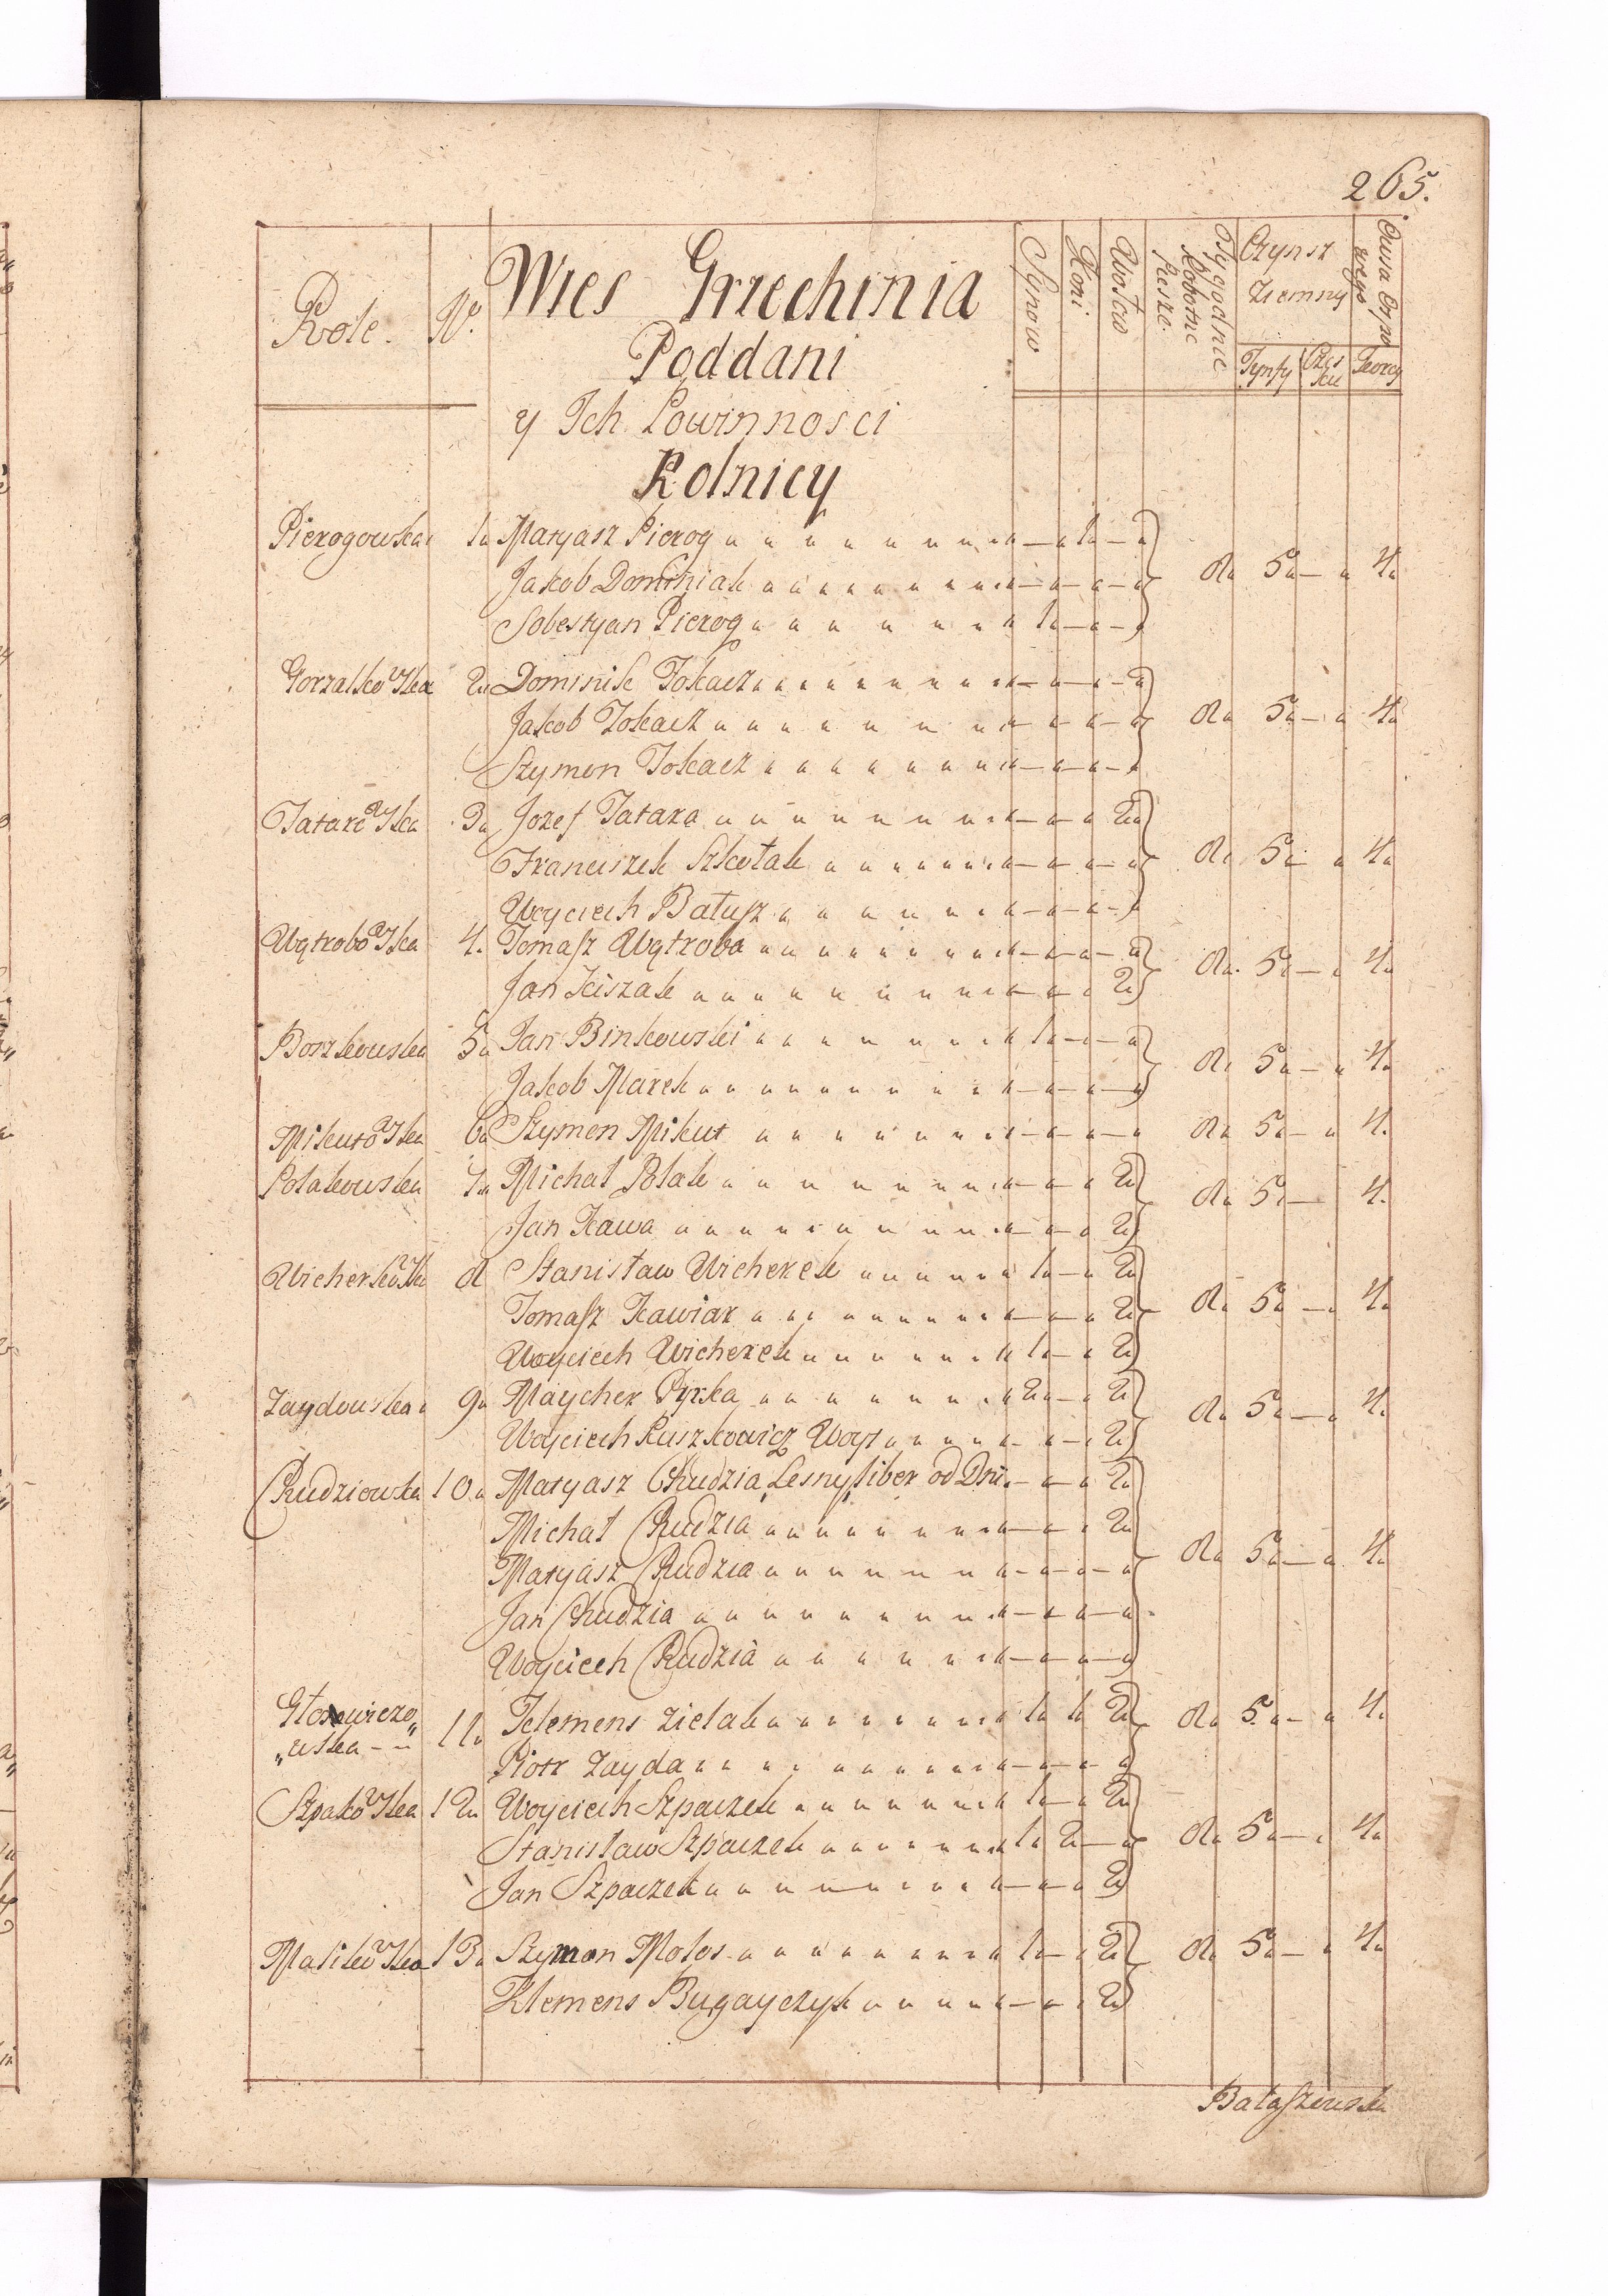 265.
Role. Nº. Wies Grzechinia Synow Koni Wołow Tygodnie Robotne Piesze. Czynsz Ziemny Owsa Czynszo wego
Poddani Tynfy Czes kie Cwierci
y Ich Powinnosci
Rolnicy
Pierogowska 1„ Matyasz Pierog „ — „ 1„ — „
Jakob Dominiak „ — „ — „ — „ 8„ 5„ — „ 4„
Sobestyan Pierog „ 1„ — „ — „
Gorzalkowska 2„ Dominik Tokacz „ — „ — „ — „
Jakob Tokacz „ — „ — „ — „ 8„ 5„ — „ 4„
Szymon Tokacz „ — „ — „ — „
Tatarowska 3„ Jozef Tatara „ — „ — „ 2„
Franciszek Szkołak „ — „ — „ — „ 8„ 5„ „ 4„
Woyciech Bałusz „ — „ — „ — „
Wątrobowska 4. Tomasz Wątroba „ — „ — „ — „ 8„ 5„ — „ 4„
Jan Kiszak „ — „ — „ 2„
Borzkowska 5„ Jan Binkowski „ 1„ — „ — „ 8„ 5„ — „ 4„
Jakob Marek „ — „ — „ — „
Mikutowska 6„ Szymon Mikut „ — „ — „ — „ 8„ 5„ — „ 4.
Polakowska 7„ Michał Polak „ — „ — „ 2„ 8„ 5„ — 4.
Jan Kawa „ — „ — „ 2„
Wicherkowska 8 Stanisław Wicherek „ 1„ — „ 2„
Tomasz Kawiar „ — „ — „ 2„ 8„ 5„ — „ 4„
Woyciech Wicherek „ 1„ — „ 2„
Zaydowska 9„ Maycher Pyrka „ 2„ — „ 2„ 8„ 5„ — „ 4.
Woyciech Kuszkowicz Woyt „ — „ — „ 2„
Chudziowska 10„ Matyasz Chudzia Lesny liber od Dni — „ — „ 2„
Michał Chudzia „ — „ — „ 2„
Matyasz Chudzia „ — „ — „ — „ 8„ 5„ — „ 4„
Jan Chudzia „ — „ — „ — „
Woyciech Chudzia „ — „ — „ — „
Głosowiczo„
„wska — „ 11„ Klemens Zielak „ 1„ 1„ 2„ 8„ 5„ — „ 4„
Piotr Zayda „ — „ — „ — „
Szpakowska 12„ Woyciech Szpaczek „ 1„ — „ 2„
Stanisław Szpaczek „ 1„ 2„ — „ 8„ 5„ — „ 4„
Jan Szpaczek „ — „ — „ 2„
Masikowska 13„ Szymon Motos „ 1„ — „ 2„ 8„ 5„ — „ 4„
Klemens Bugayczyk „ — „ — „ 2„
Bałaszewska